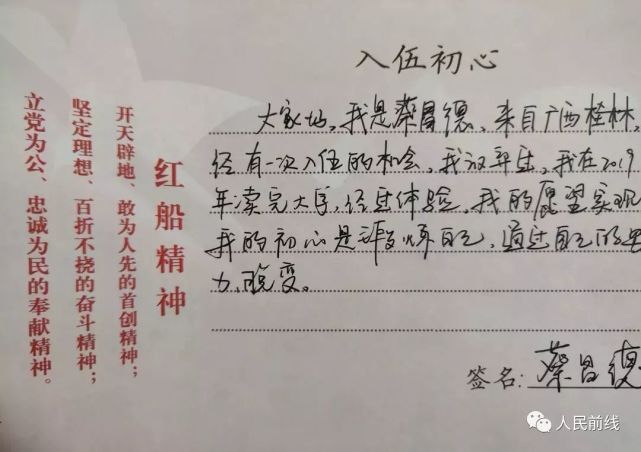 入伍初心
大家好，我是蔡昌德，来自广西桂林，
经有一次入伍的机会，我放弃过，我在2019
年读完大学，经过体验，我的愿望实现
我的初心是锻炼自己，通过自己的
力，蜕变。
签名：蔡昌德
红船精神
开天辟地、敢为人先的首创精神；
坚定理想、百折不挠的奋斗精神；
立党为公、忠诚为民的奉献精神。
人民前线